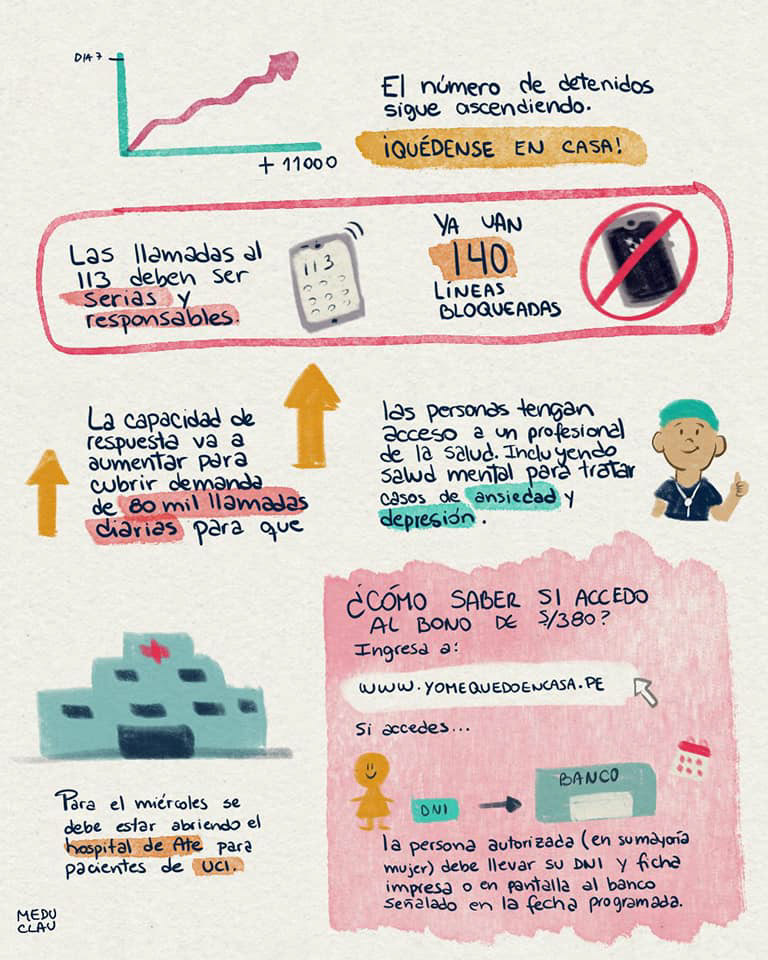 DIA 7
+ 11000
El número de detenidos
sigue ascendiendo.
¡QUÉDENSE EN CASA!
Las llamadas al
113 deben ser
serias y
responsables.
113
YA VAN
140
LÍNEAS
BLOQUEADAS
La capacidad de
respuesta va a
aumentar para
cubrir demanda
de 80 mil llamadas
diarias para que
las personas tengan
acceso a un profesional
de la salud. Incluyendo
salud mental para tratar
casos de ansiedad y
depresión.
Para el miércoles se
debe estar abriendo el
hospital de Ate para
pacientes de UCI.
¿CÓMO SABER SI ACCEDO
AL BONO DE S/380?
Ingresa a:
WWW.YOMEQUEDOENCASA.PE
Si accedes...
DNI
BANCO
la persona autorizada (en su mayoría
mujer) debe llevar su DNI y ficha
impresa o en pantalla al banco
señalado en la fecha programada.
MEDU
CLAU